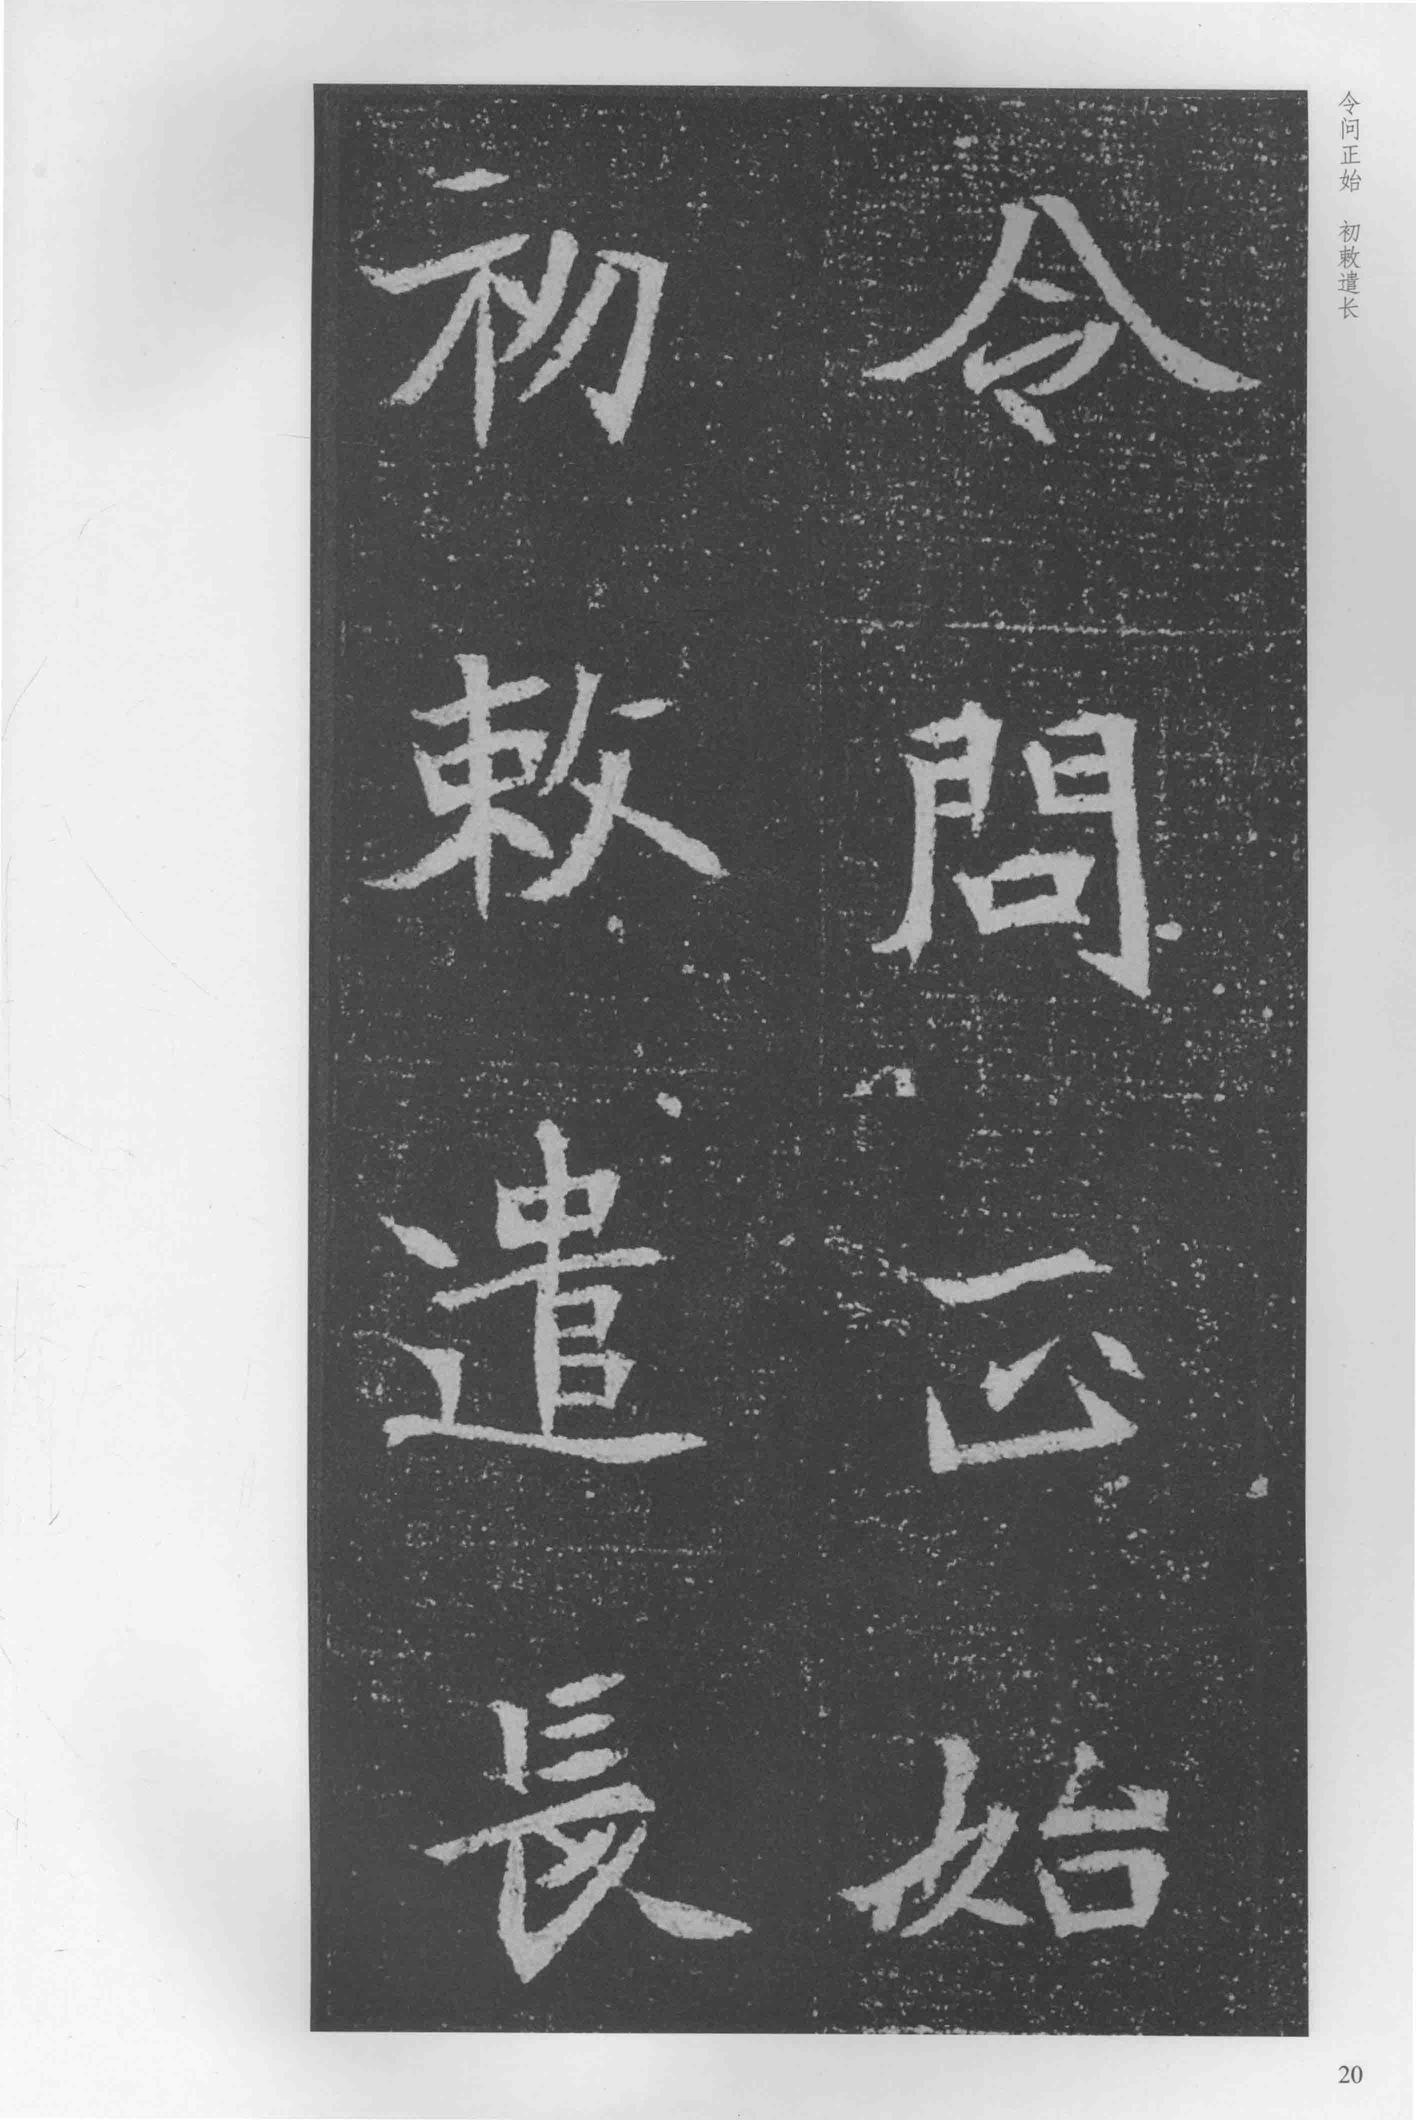 令問正始
初敕遣長
令问正始 初敕遣长
20